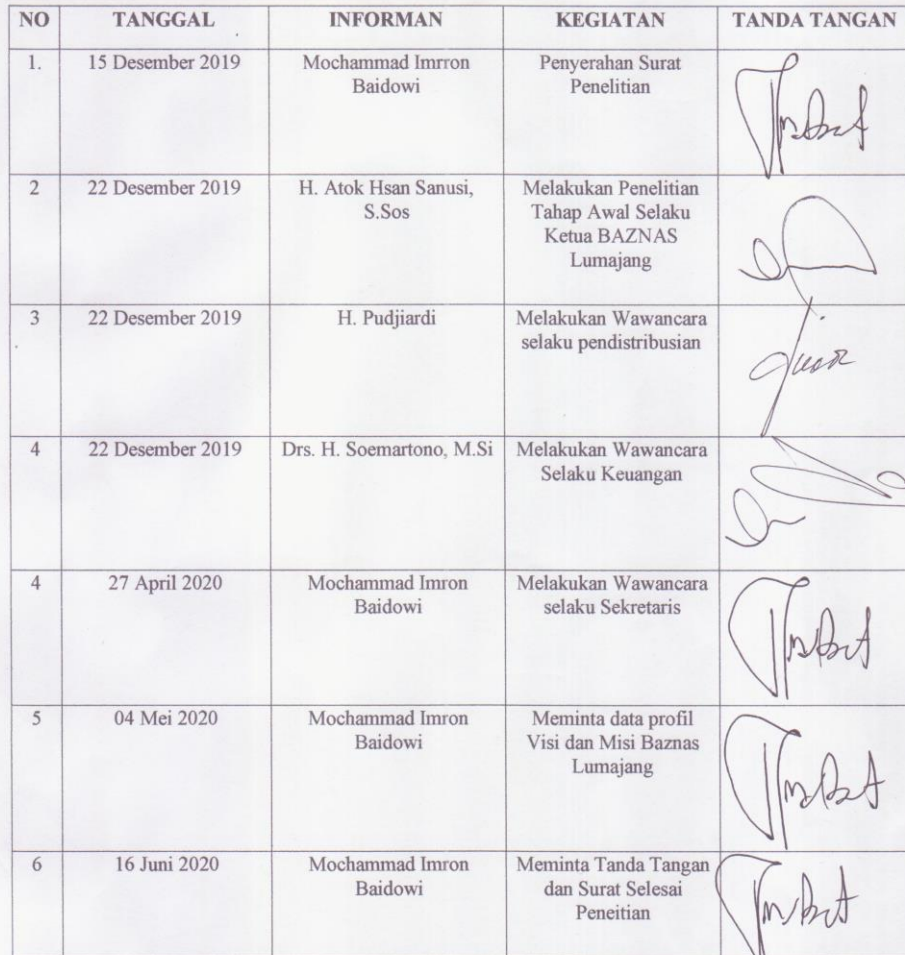 NO TANGGAL INFORMAN KEGIATAN TANDA TANGAN
1. 15 Desember 2019 Mochammad Imrron Penyerahan Surat
Baidowi Penelitian
2 22 Desember 2019 H. Atok Hsan Sanusi, Melakukan Penelitian
S.Sos Tahap Awal Selaku
Ketua BAZNAS
Lumajang
3 22 Desember 2019 H. Pudjiardi Melakukan Wawancara
selaku pendistribusian
4 22 Desember 2019 Drs. H. Soemartono, M.Si Melakukan Wawancara
Selaku Keuangan
4 27 April 2020 Mochammad Imron Melakukan Wawancara
Baidowi selaku Sekretaris
5 04 Mei 2020 Mochammad Imron Meminta data profil
Baidowi Visi dan Misi Baznas
Lumajang
6 16 Juni 2020 Mochammad Imron Meminta Tanda Tangan
Baidowi dan Surat Selesai
Peneitian